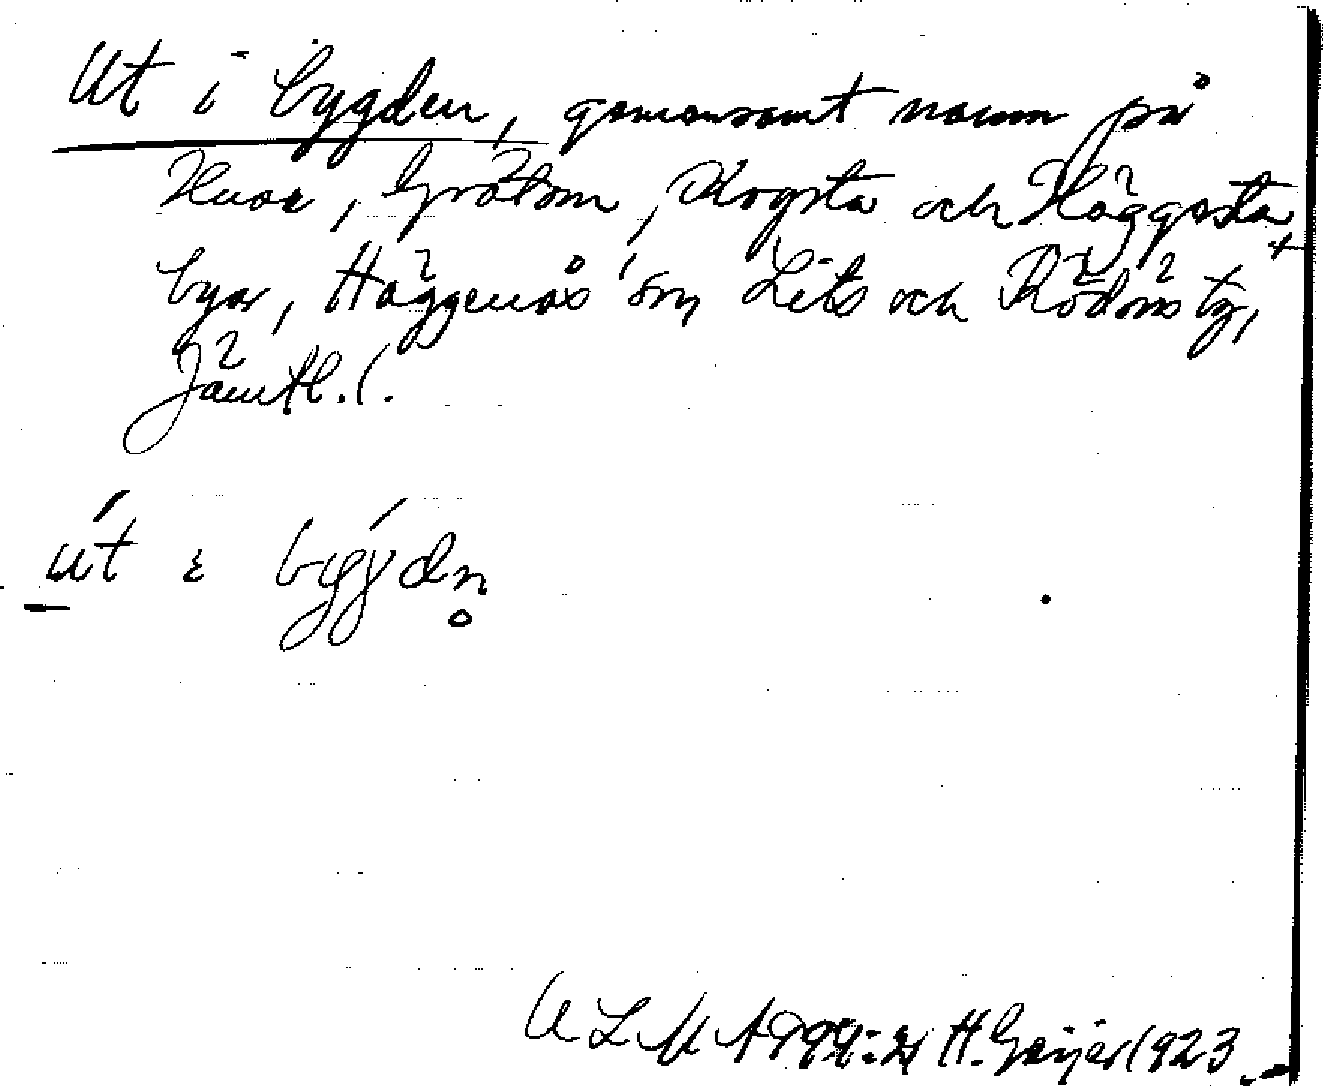 Ut i bygden, gemensamt namn på
Huse, Gråtom, Krogsta och Häggesta
byar, Häggenås sn, Lits och Rödöns tg,
Jämtl. l.
út i bygýdn̥
ULMA H. Geijer 1923